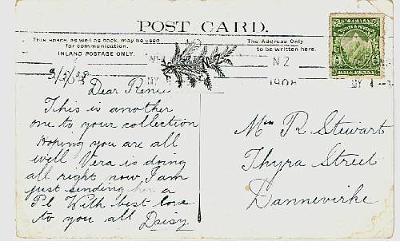 POST CARD.
This space, as well as back, may be used
for communication.
INLAND POSTAGE ONLY.
The Address Only
to be written here.
NZ
1908
3/5/08
Dear Renie
This is another
one to your collection
Hoping you are all
well Vera is doing
all right now, I am
just sending her a
P.C. With best love
to you all Daisy
Miss R Stewart
Thyra Street
Dannevirke